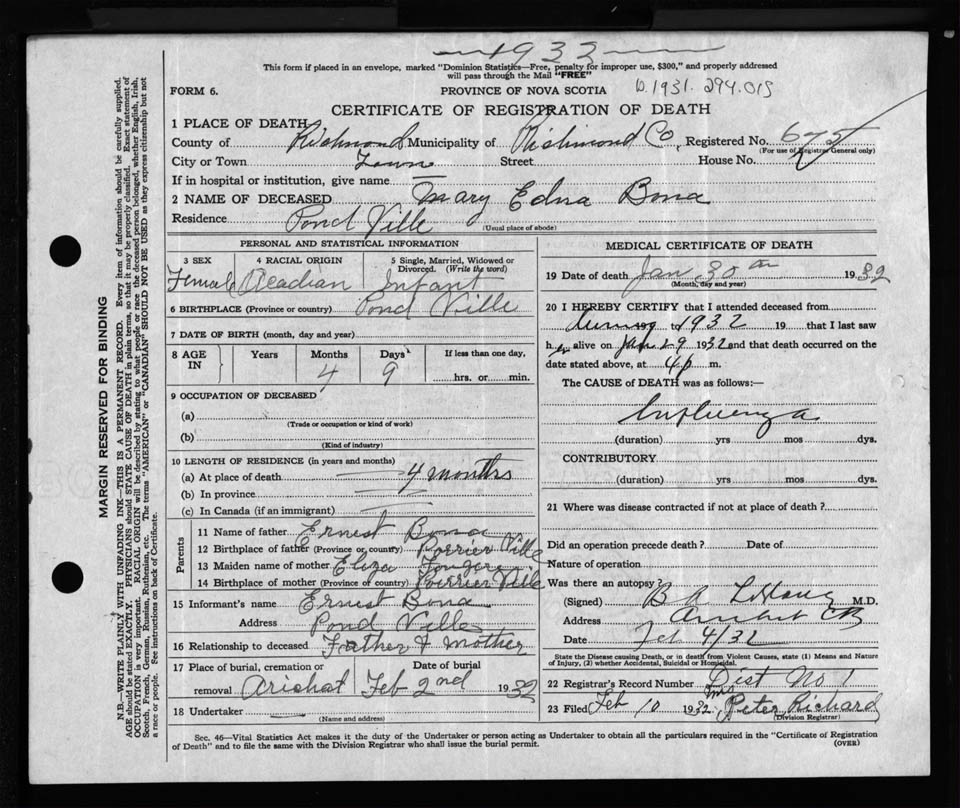 1932
This form if placed in an envelope, marked "Dominion Statistics—Free, penalty for improper use, $300," and properly addressed
will pass through the Mail "FREE"
FORM 6.
PROVINCE OF NOVA SCOTIA
D.1931.294.015
CERTIFICATE OF REGISTRATION OF DEATH
1 PLACE OF DEATH
County of Richmond Municipality of Richmond Co. Registered No. 675
(For use of Registrar General only)
City or Town Street House No.
If in hospital or institution, give name —
2 NAME OF DECEASED Mary Edna Bona
Residence Pond Ville
(Usual place of abode)
PERSONAL AND STATISTICAL INFORMATION
3 SEX
Female
4 RACIAL ORIGIN
Acadian
5 Single, Married, Widowed or
Divorced. (Write the word)
Infant
6 BIRTHPLACE (Province or country) Pond Ville
7 DATE OF BIRTH (month, day and year)
8 AGE IN Years Months Days If less than one day,
4 9 hrs. or min.
9 OCCUPATION OF DECEASED
(a)
(Trade or occupation or kind of work)
(b)
(Kind of industry)
10 LENGTH OF RESIDENCE (in years and months)
(a) At place of death 4 months
(b) In province
(c) In Canada (if an immigrant)
Parents
11 Name of father Ernest Bona
12 Birthplace of father (Province or country) Poirrier Ville
13 Maiden name of mother Eliza Fougere
14 Birthplace of mother (Province or country) Poirrier Ville
15 Informant's name Ernest Bona
Address Pond Ville
16 Relationship to deceased Father & Mother
17 Place of burial, cremation or Date of burial
removal Arichat Feb 2nd 1932
18 Undertaker —
(Name and address)
MEDICAL CERTIFICATE OF DEATH
19 Date of death Jan 30th 1932
(Month, day and year)
20 I HEREBY CERTIFY that I attended deceased from
during 19 to 1932 19 that I last saw
her alive on Jan 29 1932 and that death occurred on the
date stated above, at 4 p m.
The CAUSE of DEATH was as follows:—
Influenza
(duration) yrs mos dys.
CONTRIBUTORY
(duration) yrs mos dys.
21 Where was disease contracted if not at place of death?
Did an operation precede death? Date of
Nature of operation
Was there an autopsy?
(Signed) B A LeBlanc M.D.
Address Arichat CB
Date Feb 4/32
State the Disease causing Death, or in death from Violent Causes, state (1) Means and Nature
of Injury, (2) whether Accidental, Suicidal or Homicidal.
22 Registrar's Record Number Dist No 1
23 Filed Feb 10 1932 Peter Richard
(Division Registrar)
Sec. 46—Vital Statistics Act makes it the duty of the Undertaker or person acting as Undertaker to obtain all the particulars required in the "Certificate of Registration
of Death" and to file the same with the Division Registrar who shall issue the burial permit. (OVER)
MARGIN RESERVED FOR BINDING
N.B.—WRITE PLAINLY WITH UNFADING INK—THIS IS A PERMANENT RECORD. Every item of information should be carefully supplied.
AGE should be stated EXACTLY. PHYSICIANS should STATE CAUSE OF DEATH in plain terms, so that it may be properly classified. Exact statement of
OCCUPATION is very important. RACIAL ORIGIN will be described by stating to what people or race the deceased person belonged, whether English, Irish,
Scotch, French, German, Russian, Ruthenian, etc. The terms "AMERICAN" or "CANADIAN" SHOULD NOT BE USED as they express citizenship but not
a race or people. See instructions on back of Certificate.